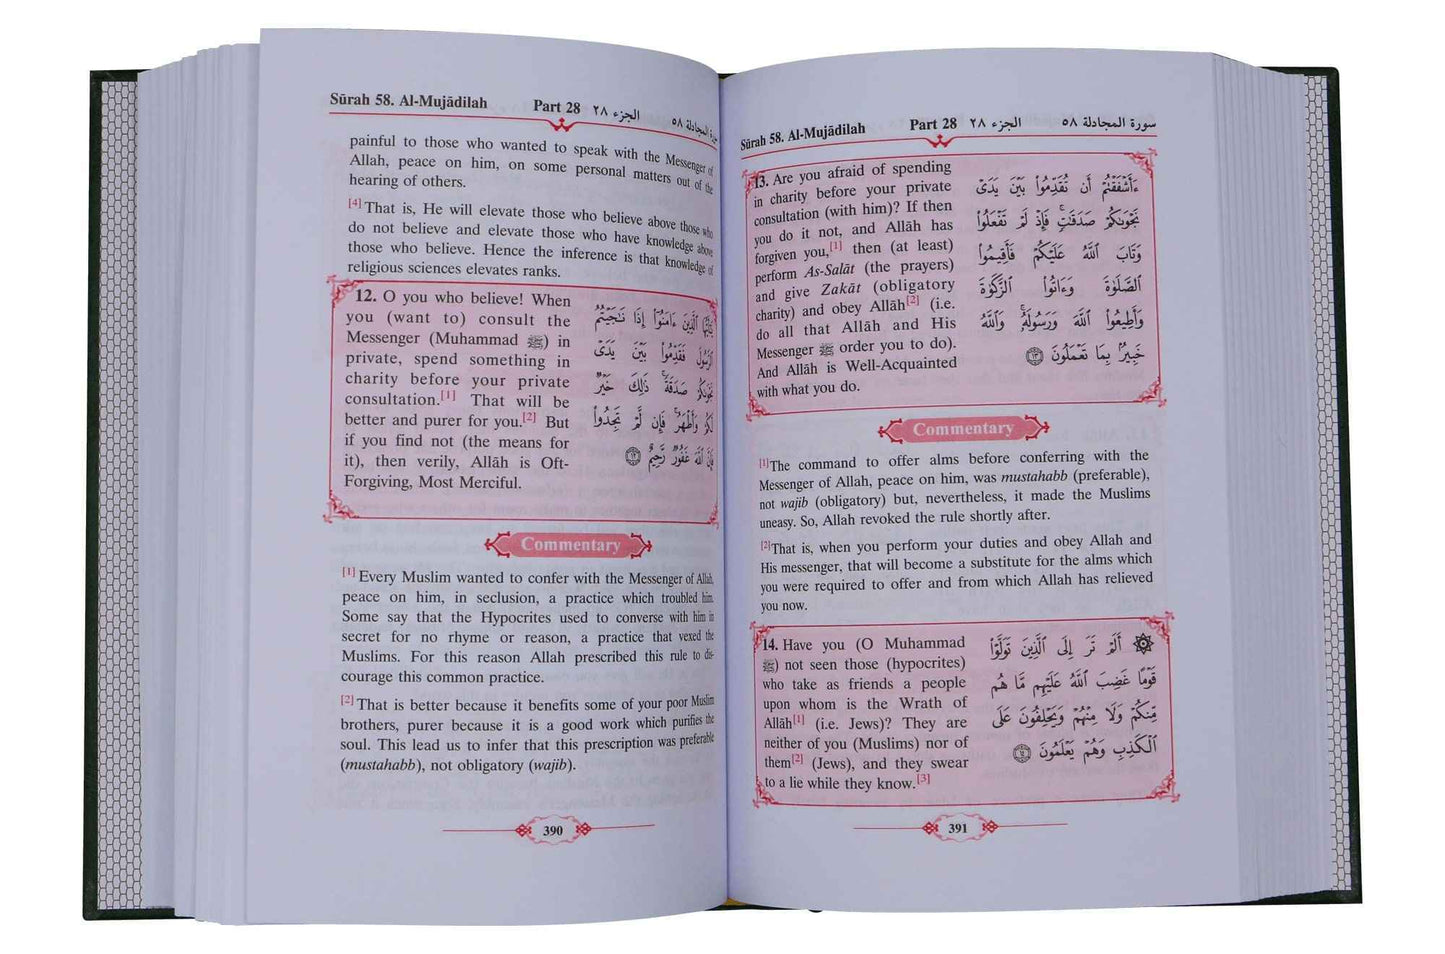 Sūrah 58. Al-Mujādilah Part 28 الجزء ٢٨ سورة المجادلة ٥٨
painful to those who wanted to speak with the Messenger of
Allah, peace on him, on some personal matters out of the
hearing of others.
[4]That is, He will elevate those who believe above those who
do not believe and elevate those who have knowledge above
those who believe. Hence the inference is that knowledge of
religious sciences elevates ranks.
12. O you who believe! When
you (want to) consult the
Messenger (Muhammad ﷺ) in
private, spend something in
charity before your private
consultation.[1] That will be
better and purer for you.[2] But
if you find not (the means for
it), then verily, Allāh is Oft-
Forgiving, Most Merciful.
يَٰٓأَيُّهَا ٱلَّذِينَ ءَامَنُوٓا۟ إِذَا نَٰجَيْتُمُ
ٱلرَّسُولَ فَقَدِّمُوا۟ بَيْنَ يَدَىْ
نَجْوَىٰكُمْ صَدَقَةً ۚ ذَٰلِكَ خَيْرٌ
لَّكُمْ وَأَطْهَرُ ۚ فَإِن لَّمْ تَجِدُوا۟
فَإِنَّ ٱللَّهَ غَفُورٌ رَّحِيمٌ ١٢
Commentary
[1]Every Muslim wanted to confer with the Messenger of Allah,
peace on him, in seclusion, a practice which troubled him.
Some say that the Hypocrites used to converse with him in
secret for no rhyme or reason, a practice that vexed the
Muslims. For this reason Allah prescribed this rule to dis-
courage this common practice.
[2]That is better because it benefits some of your poor Muslim
brothers, purer because it is a good work which purifies the
soul. This lead us to infer that this prescription was preferable
(mustahabb), not obligatory (wajib).
390
Sūrah 58. Al-Mujādilah Part 28 الجزء ٢٨ سورة المجادلة ٥٨
13. Are you afraid of spending
in charity before your private
consultation (with him)? If then
you do it not, and Allāh has
forgiven you,[1] then (at least)
perform As-Salāt (the prayers)
and give Zakāt (obligatory
charity) and obey Allāh[2] (i.e.
do all that Allāh and His
Messenger ﷺ order you to do).
And Allāh is Well-Acquainted
with what you do.
ءَأَشْفَقْتُمْ أَن تُقَدِّمُوا۟ بَيْنَ يَدَىْ
نَجْوَىٰكُمْ صَدَقَٰتٍ ۚ فَإِذْ لَمْ تَفْعَلُوا۟
وَتَابَ ٱللَّهُ عَلَيْكُمْ فَأَقِيمُوا۟
ٱلصَّلَوٰةَ وَءَاتُوا۟ ٱلزَّكَوٰةَ
وَأَطِيعُوا۟ ٱللَّهَ وَرَسُولَهُۥ ۚ وَٱللَّهُ
خَبِيرٌۢ بِمَا تَعْمَلُونَ ١٣
Commentary
[1]The command to offer alms before conferring with the
Messenger of Allah, peace on him, was mustahabb (preferable),
not wajib (obligatory) but, nevertheless, it made the Muslims
uneasy. So, Allah revoked the rule shortly after.
[2]That is, when you perform your duties and obey Allah and
His messenger, that will become a substitute for the alms which
you were required to offer and from which Allah has relieved
you now.
14. Have you (O Muhammad
ﷺ) not seen those (hypocrites)
who take as friends a people
upon whom is the Wrath of
Allāh[1] (i.e. Jews)? They are
neither of you (Muslims) nor of
them[2] (Jews), and they swear
to a lie while they know.[3]
۞ أَلَمْ تَرَ إِلَى ٱلَّذِينَ تَوَلَّوْا۟
قَوْمًا غَضِبَ ٱللَّهُ عَلَيْهِم مَّا هُم
مِّنكُمْ وَلَا مِنْهُمْ وَيَحْلِفُونَ عَلَى
ٱلْكَذِبِ وَهُمْ يَعْلَمُونَ ١٤
391